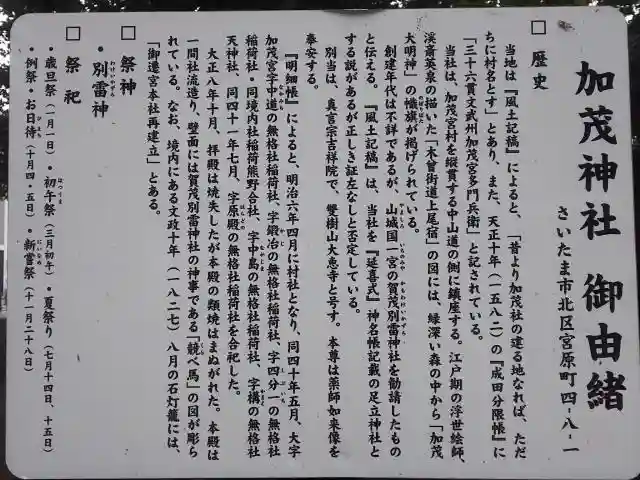 加茂神社 御由緒
さいたま市北区宮原町四-八-一
□ 歴史
当地は『風土記稿』によると、「昔より加茂社の建る地なれば、ただ
ちに村名とす」とあり、また、天正十年(一五八二)の『成田分限帳』に
「三十六貫文武州加茂宮多門兵衛」と記されている。
当社は、加茂宮村を縦貫する中山道の側に鎮座する。江戸期の浮世絵師、
渓斎英泉の描いた「木曽街道上尾宿」の図には、緑深い森の中から「加茂
大明神」の幟旗が掲げられている。
創建年代は不詳であるが、山城国一宮の賀茂別雷神社を勧請したもの
と伝える。『風土記稿』は、当社を『延喜式』神名帳記載の足立神社と
する説があるが正しき証左なしと否定している。
別当は、真言宗吉祥院で、雙樹山大恵寺と号す。本尊は薬師如来像を
奉安する。
『明細帳』によると、明治六年四月に村社となり、同四十年五月、大字
加茂宮字中道の無格社稲荷社、字鍛冶の無格社稲荷社、字四分一の無格社
稲荷社・同境内社稲荷熊野合社、字中島の無格社稲荷社、字構の無格社
天神社、同四十一年七月、字原殿の無格社稲荷社を合祀した。
大正八年十月、拝殿は焼失したが本殿の類焼はまぬがれた。本殿は
一間社流造り、壁面には賀茂別雷神社の神事である「競べ馬」の図が彫ら
れている。なお、境内にある文政十年(一八二七)八月の石灯籠には、
「御遷宮本社再建立」とある。
□ 祭神
・別雷神
□ 祭祀
・歳旦祭(一月一日)・初午祭(三月初午)・夏祭り(七月十四日、十五日)
・例祭・お日待(十月四・五日)・新嘗祭(十一月二十八日)